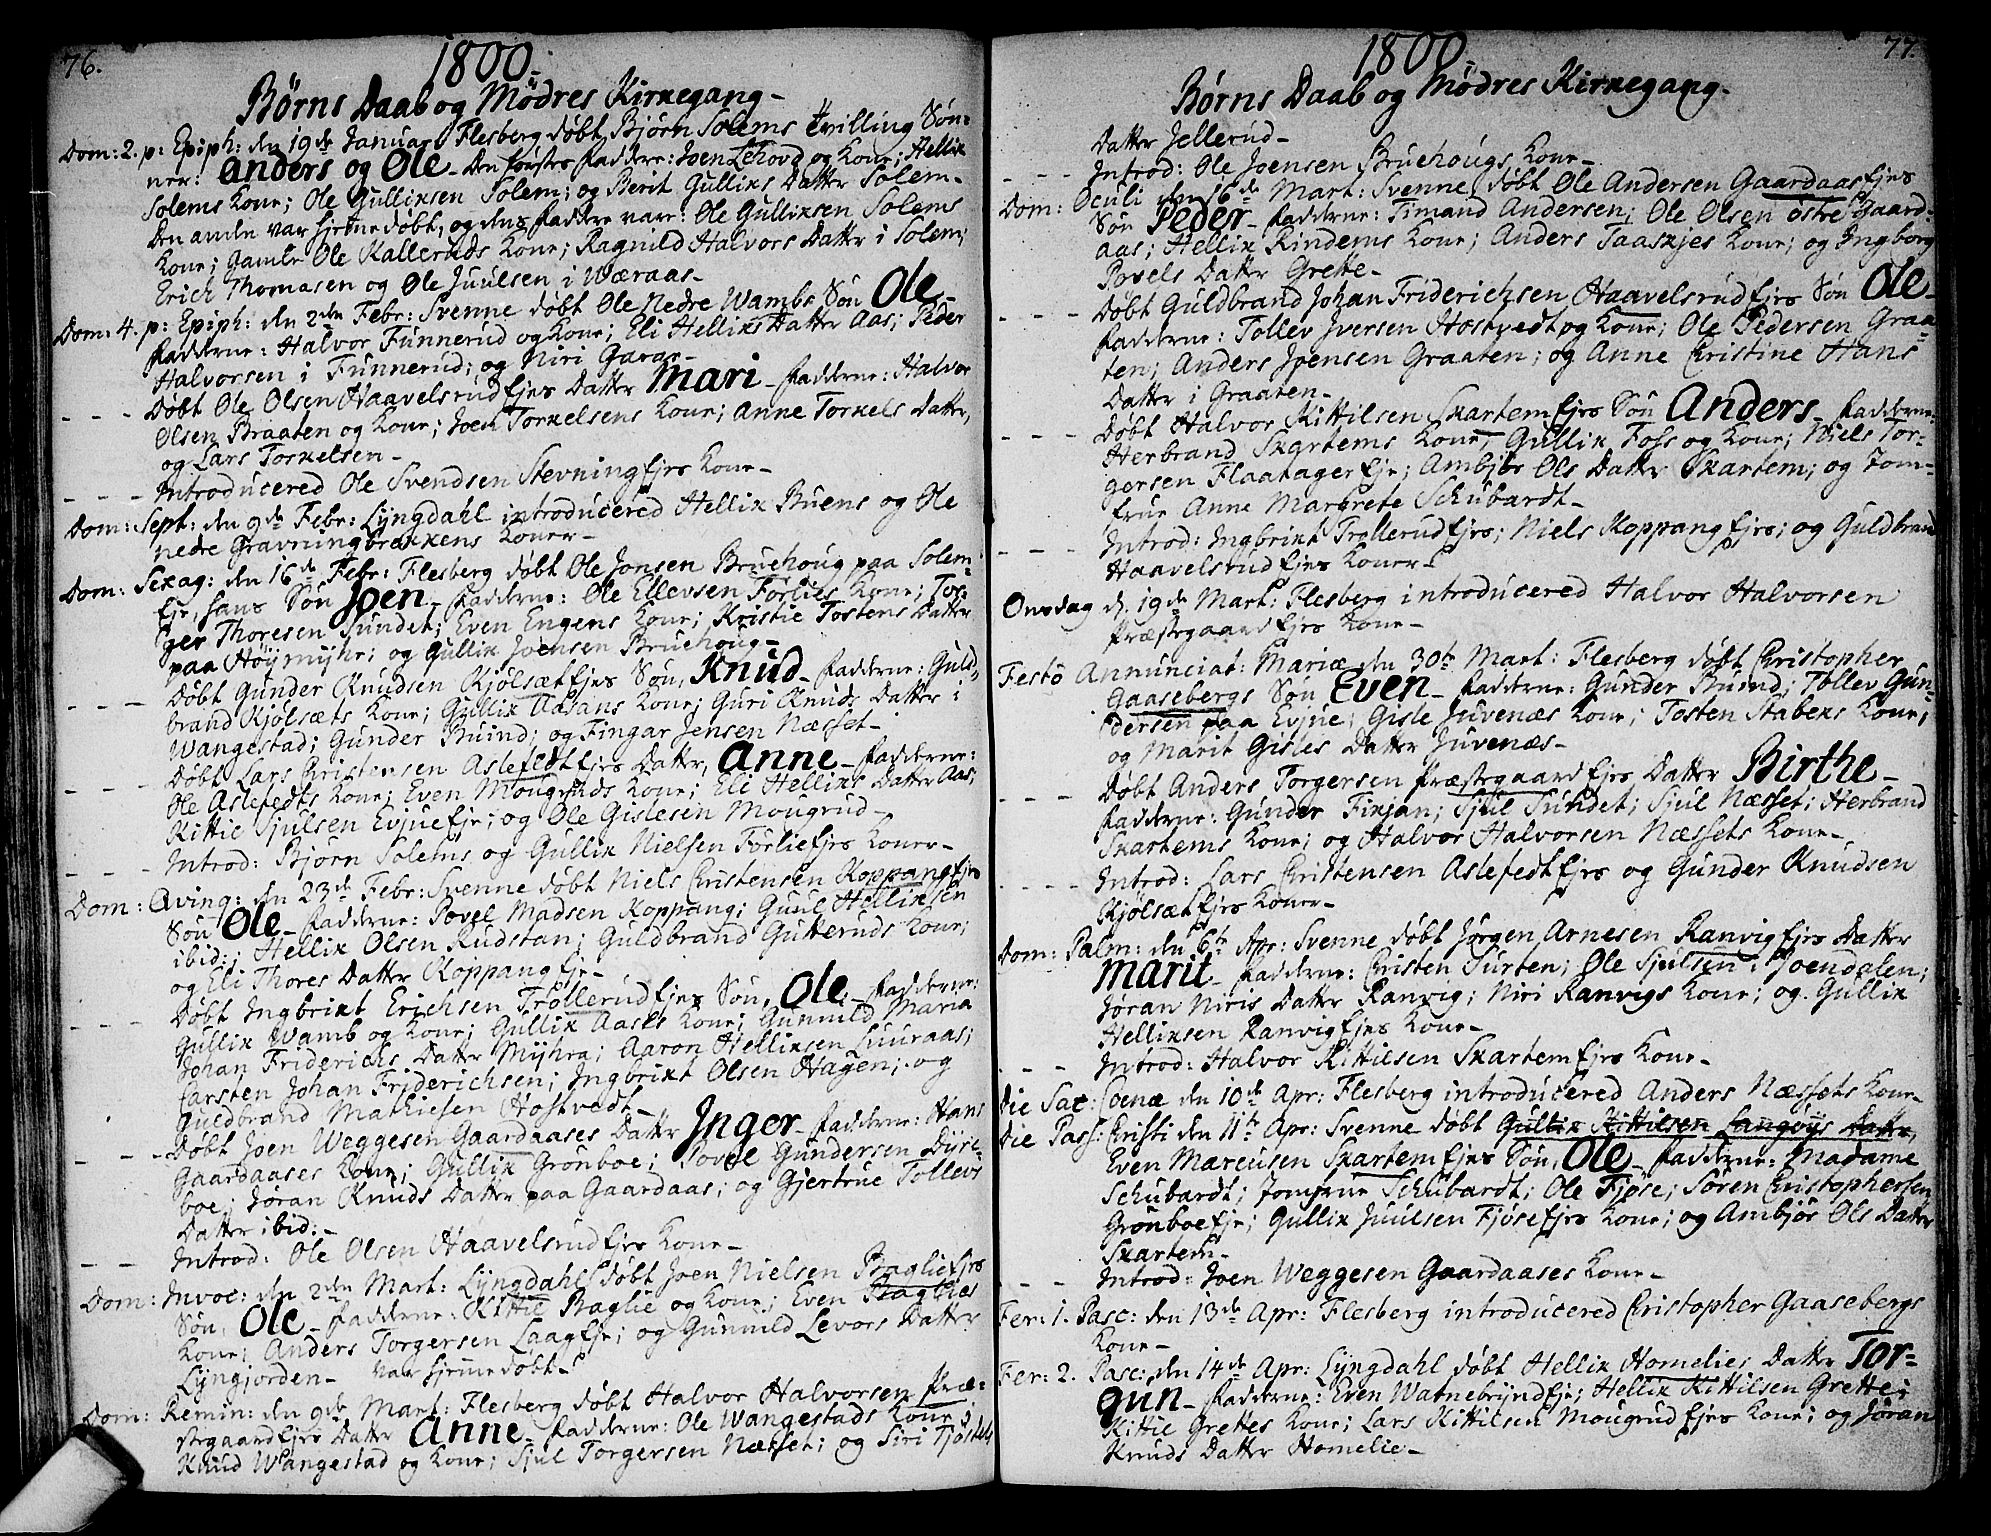 76.
1800.
Børns Daab og Mødres Kirkegang-
Dom: 2. p: Epiph: den 19de Januar: Flesberg døbt Bjørn Solems Tvilling Søn-
ner: Anders og Ole - Den førstes Faddere: Joen Lehovd og Kone; Hellik
Solems Kone; Ole Gulliksen Solem; og Berit Gulliks Datter Solem-
Den anden var hjemmedøbt, og dens Faddere vare: Ole Gulliksen Solems
Kone; Gamle Ole Kalleruds Kone; Ragnild Halvors Datter i Solem;
Erich Thomasen og Ole Juulsen i Wæraas-
Dom: 4. p: Epiph: den 2den Febr: Svenne døbt Ole Nedre Wambs Søn Ole-
Fadderne: Halvor Funnerud og Kone; Eli Helliks Datter Aas; Peder
Halvorsen i Funnerud; og Niri Garaas-
- - - Døbt Ole Olsen Haavelsrudejes Datter Mari - Fadderne: Halvor
Olsen Braaten og Kone; Joen Torkelsens Kone; Anne Torkels Datter,
og Lars Torkelsen-
- - - Introducered Ole Svendsen Stevningejes Kone-
Dom: Sept: den 9de Febr: Lyngdahl introducered Hellik Buens og Ole
nedre Gravningbrekkens Koner-
Dom: Sexag: den 16de Febr: Flesberg døbt Ole Jonsen Bruehoug paa Solem-
eje, hans Søn Joen - Fadderne: Ole Ellevsen Forlies Kone; Tor-
ger Thoresen Sundet; Even Engens Kone; Kristie Tostens Datter
paa Høymyhr; og Gullik Joensen Bruehoug-
- - - Døbt Gunder Knudsen Kjølsætejes Søn, Knud - Fadderne: Guld-
brand Kjølsæts Kone; Gullik Aasans Kone; Guri Knuds Datter i
Wangestad; Gunder Buind; og Fingar Jensen Næsset-
- - - Døbt Lars Christensen Aslefedtejes Datter, Anne - Fadderne:
Ole Aslefedts Kone; Even Mougruds Kone; Eli Helliks Datter Aas;
Kittil Sjulsen Evjueeje; og Ole Gislesen Mougrud-
- - - Introd: Bjørn Solems og Gullik Nielsen Forliejes Koner-
Dom: Qvinq: den 23de Febr: Svenne døbt Niels Christensen Koppangejes
Søn Ole - Fadderne: Povel Madsen Koppang; Guul Helliksen
ibid:; Hellik Olsen Rudstan; Guldbrand Gutteruds Kone;
og Eli Thores Datter Koppangeje-
- - - Døbt Ingbrikt Erichsen Trollerudejes Søn, Ole - Fadderne:
Gullik Wamb og Kone; Gullik Aases Kone; Gunnild Maria
Johan Friderichs Datter Myhra; Aaron Helliksen Luuraas;
Carsten Johan Friderichsen; Ingbrikt Olsen Hagen; og
Guldbrand Mathiesen Hostvedt-
- - - Døbt Joen Weggesen Gaardaases Datter Inger - Fadderne: Hans
Gaardaases Kone; Gullik Grønboe; Povel Gundersen Dyre-
boe; Jøran Knuds Datter paa Gaardaas; og Gjertrue Tollevs
Datter ibid:-
- - Introd: Ole Olsen Haavelsrudejes Kone-
Dom: Invoc: den 2den Mart: Lyngdahl døbt Joen Nielsen Bagliejes
Søn, Ole - Fadderne: Kittil Baglie og Kone; Even Baglies
Kone; Anders Torgersen Laageje; og Gunnild Levors Datter
Lyngjorden- Var hjemmedøbt-
Dom: Remin: den 9de Mart: Flesberg døbt Halvor Halvorsen Præ-
stegaardejes Datter Anne - Fadderne: Ole Wangestads Kone;
Knud Wangestad og Kone; Sjul Torgersen Næsset; og Siri Tjøstels
77.
1800.
Børns Daab og Mødres Kirkegang-
Datter Jellerud-
- - - Introd: Ole Joensen Bruehougs Kone-
Dom: Oculi den 16de Mart: Svenne døbt Ole Andersen Gaardaasejes
Søn Peder - Fadderne: Timand Andersen; Ole Olsen østre Gaard-
aas; Hellik Rindems Kone; Anders Taaskjes Kone; og Ingborg
Povels Datter Grette-
- - - Døbt Guldbrand Johan Friderichsen Haavelsrudejes Søn Ole-
Fadderne: Tollev Iversen Hostvedt og Kone; Ole Pedersen Graa-
ten; Anders Joensen Graaten; og Anne Christine Hans
Datter i Graaten-
- - - Døbt Halvor Kittilsen Skartemejes Søn Anders - Fadderne:
Herbrand Skartems Kone; Gullik Foss og Kone; Niels Tor-
gersen Flaatagereje; Ambjør Ols Datter Skartem; og Jom-
frue Anne Margrete Schubardt-
- - - Introd: Ingbrikt Trollerudejes; Niels Koppangejes; og Guldbrand
Haavelsrudejes Koner-
Onsdag d. 19de Mart: Flesberg introducered Halvor Halvorsen
Præstegaardejes Kone-
Festo Annunciat: Mariæ den 30te Mart: Flesberg døbt Christopher
Gaasebergs Søn Even - Fadderne: Gunder Buind; Tollev Gun-
dersen paa Evjue; Gisle Juvenæs Kone; Tosten Stabeks Kone;
og Marit Gisles Datter Juvenæs-
- - - Døbt Anders Torgersen Præstegaardejes Datter Birthe-
Fadderne: Gunder Fikjan; Sjul Sundet; Sjul Næsset; Herbrand
Skartems Kone; og Halvor Halvorsen Næssets Kone-
- - - Introd: Lars Christensen Aslefedtejes og Gunder Knudsen
Kjølsætejes Koner-
Dom: Palm: den 6te Apr: Svenne døbt Jørgen Arnesen Ranvigejes Datter
Marit - Fadderne: Christen Surten; Ole Sjulsen i Joendalen;
Jøran Niris Datter Ranvig; Niri Ranvigs Kone; og Gullik
Helliksen Ranvigejes Kone-
- - - Introd: Halvor Kittilsen Skartemejes Kone-
Die Sac: Coenæ den 10de Apr: Flesberg introducered Anders Næssets Kone-
Die Pass: Christi den 11te Apr: Svenne døbt Gullik Kittilsen Langøys Datter,
Even Marcusen Skartemejes Søn, Ole - Fadderne: Madame
Schubardt; Jomfrue Schubardt; Ole Fjøse; Søren Christophersen
Grønboeeje; Gullik Juulsen Fjøseejes Kone; og Ambjør Ols Datter
Skartem-
- - - Introd: Joen Weggesen Gaardaases Kone-
Fer: 1. Pasc: den 13de Apr: Flesberg introducered Christopher Gaasebergs
Kone-
Fer: 2. Pasc: den 14de Apr: Lyngdahl døbt Hellik Homelies Datter Tor-
gun - Fadderne: Even Watnebryndeje; Hellik Kittilsen Grette;
Kittil Grettes Kone; Lars Kittilsen Mougrudejes Kone; og Jøran
Knuds Datter Homelie-